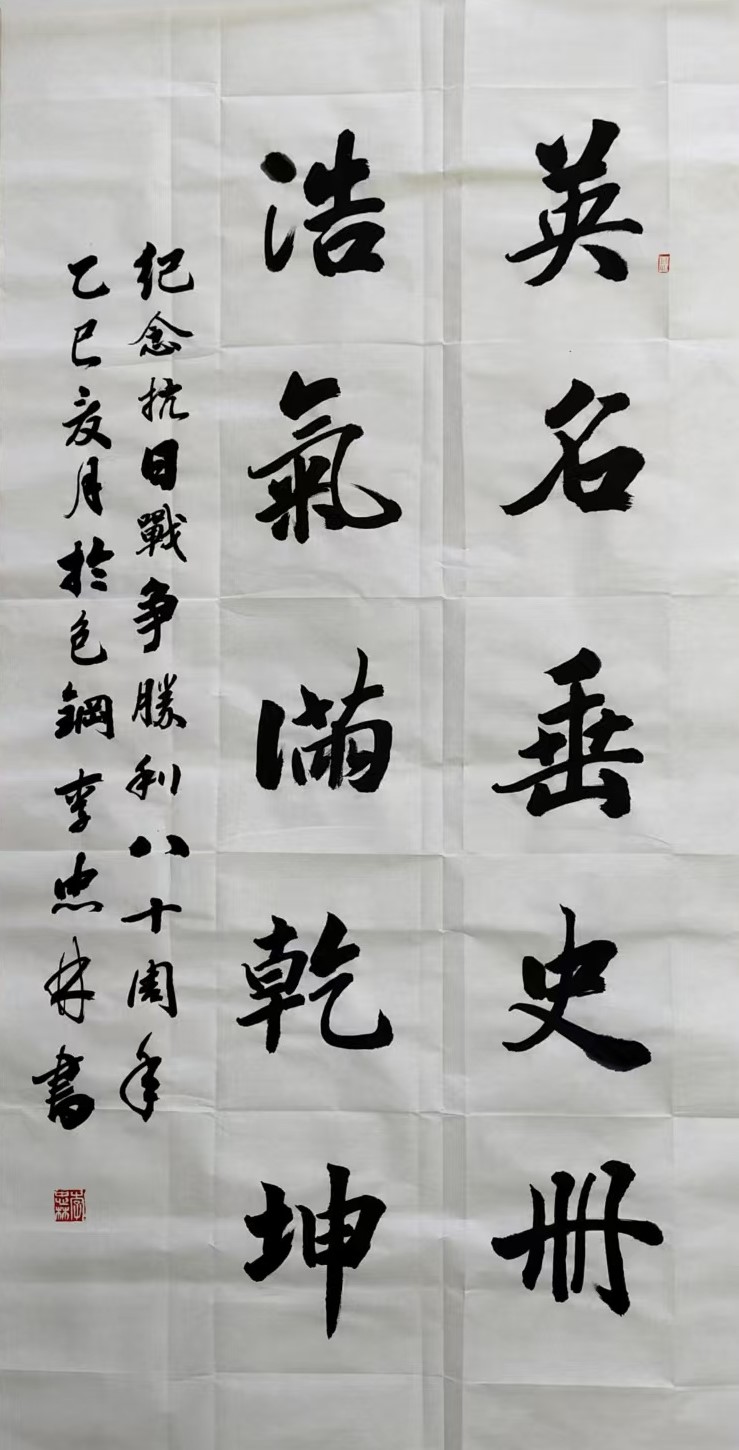 英名垂史册
浩氣滿乾坤
紀念抗日戰争勝利八十周年
乙巳夏月於包鋼李忠林書
李忠林